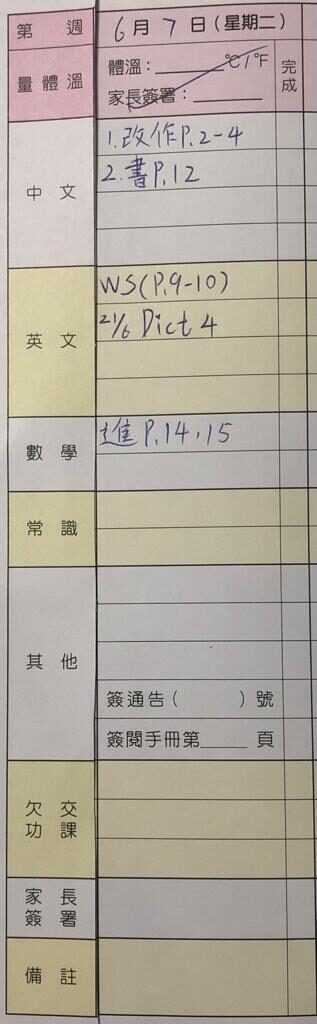 第 週 6月7日(星期二)
量體溫
體溫:______℃/℉
家長簽署:______
完成
中文
1.改作P.2-4
2.書P.12
英文
WS(P.9-10)
21/6 Dict 4
數學
進P.14,15
常識
其他
簽通告( )號
簽閱手冊第____頁
欠交
功課
家長
簽署
備註